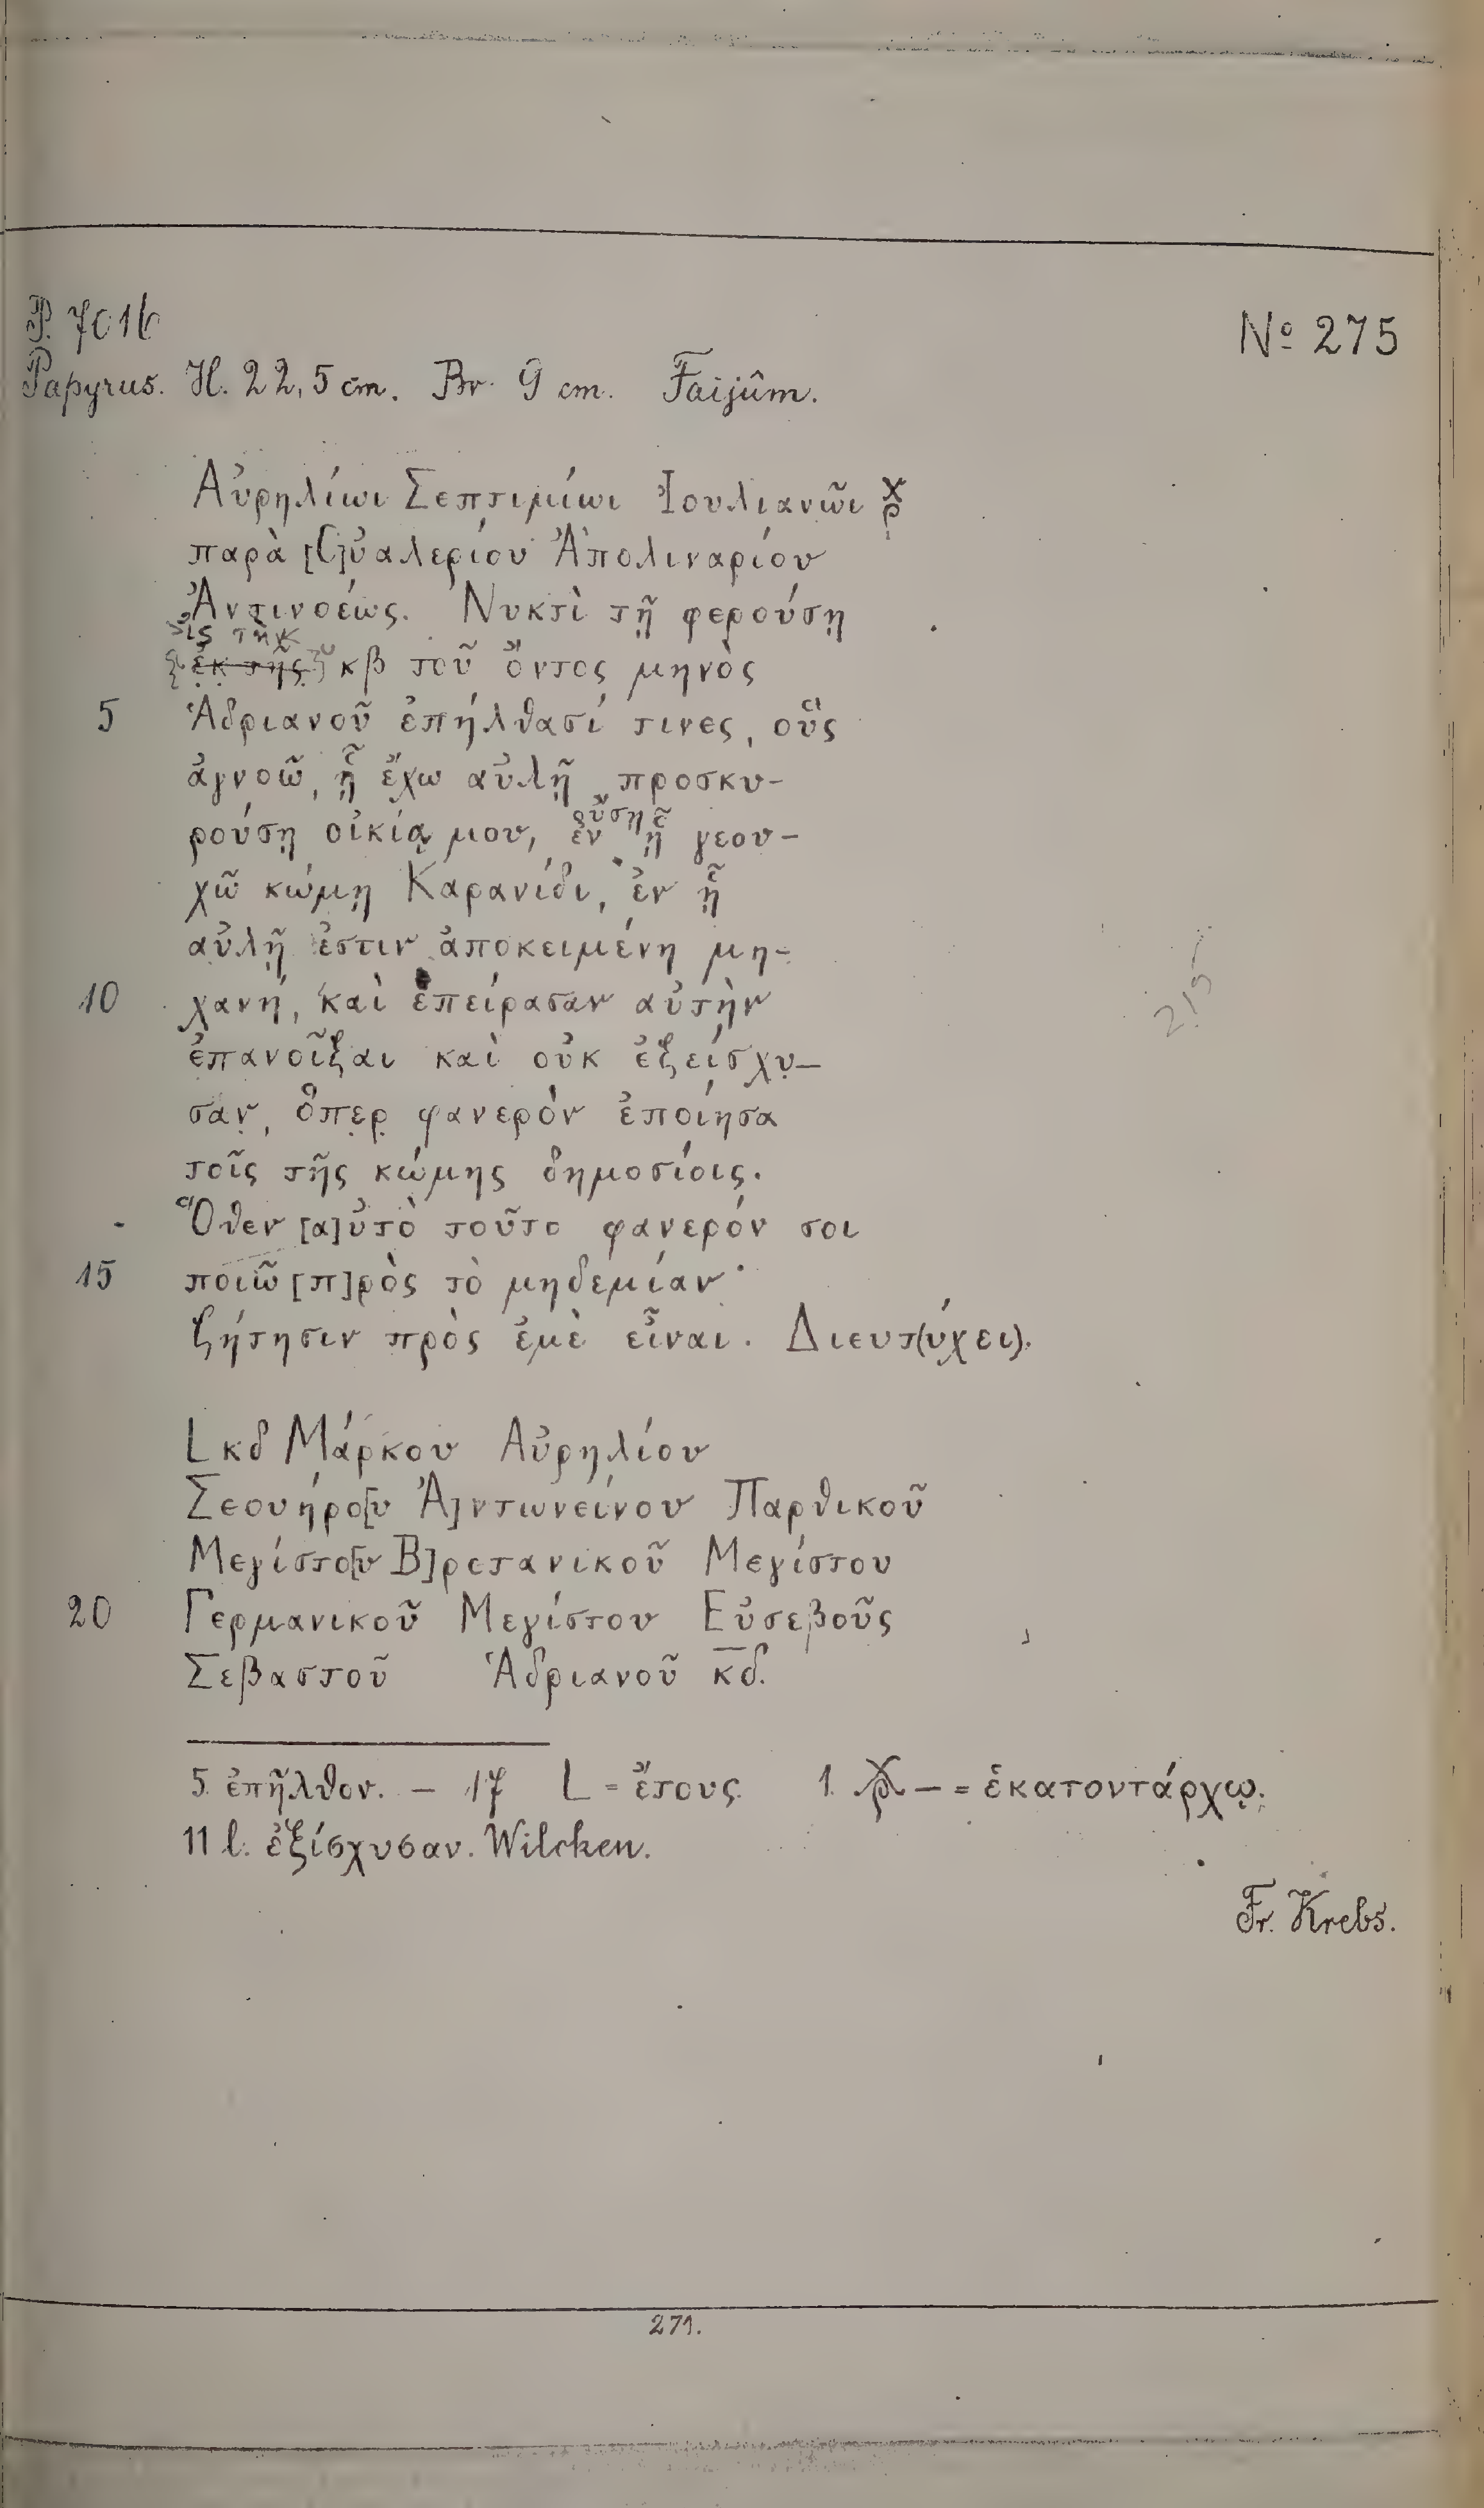 P. 7016
Nº 275
Papyrus. H. 22,5 cm. Br. 9 cm. Faijûm.
Αὐρηλίωι Σεπτιμίωι Ἰουλιανῶι ⳩
παρὰ [Ο]ὐαλερίου Ἀπολιναρίου
Ἀντινοέως. Νυκτὶ τῇ φερούσῃ
εἰς τὴν
ἐκ τῆς κβ τοῦ ὄντος μηνὸς
5 Ἁδριανοῦ ἐπήλθασί τινες, οὓς
ἀγνοῶ, ᾗ ἔχω αὐλῇ προσκυ-
οὔσῃ
ρούσῃ οἰκίᾳ μου, ἐν ᾗ γεου-
χῶ κώμῃ Καρανίδι, ἐν ᾗ
αὐλῇ ἐστιν ἀποκειμένη μη-
10 χανή, καὶ ἐπείρασαν αὐτὴν
ἐπανοῖξαι καὶ οὐκ ἐξείσχυ-
σαν, ὅπερ φανερὸν ἐποίησα
τοῖς τῆς κώμης δημοσίοις.
Ὅθεν [α]ὐτὸ τοῦτο φανερόν σοι
15 ποιῶ [π]ρὸς τὸ μηδεμίαν
ζήτησιν πρὸς ἐμὲ εἶναι. Διευτ(ύχει).
L κδ Μάρκου Αὐρηλίου
Σεουήρο[υ Ἀ]ντωνείνου Παρθικοῦ
Μεγίστο[υ Β]ρετανικοῦ Μεγίστου
20 Γερμανικοῦ Μεγίστου Εὐσεβοῦς
Σεβαστοῦ Ἁδριανοῦ κ̅δ̅.
5. ἐπῆλθον. – 17 L = ἔτους. 1. ⳩ – = ἑκατοντάρχῳ.
11 l. ἐξίσχυσαν. Wilcken.
Fr. Krebs.
215
271.